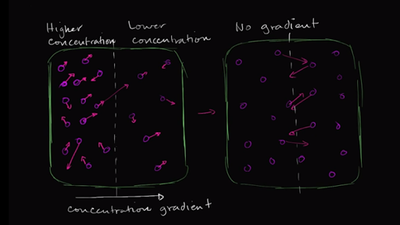 Higher
concentration
Lower
concentration
No gradient
concentration gradient